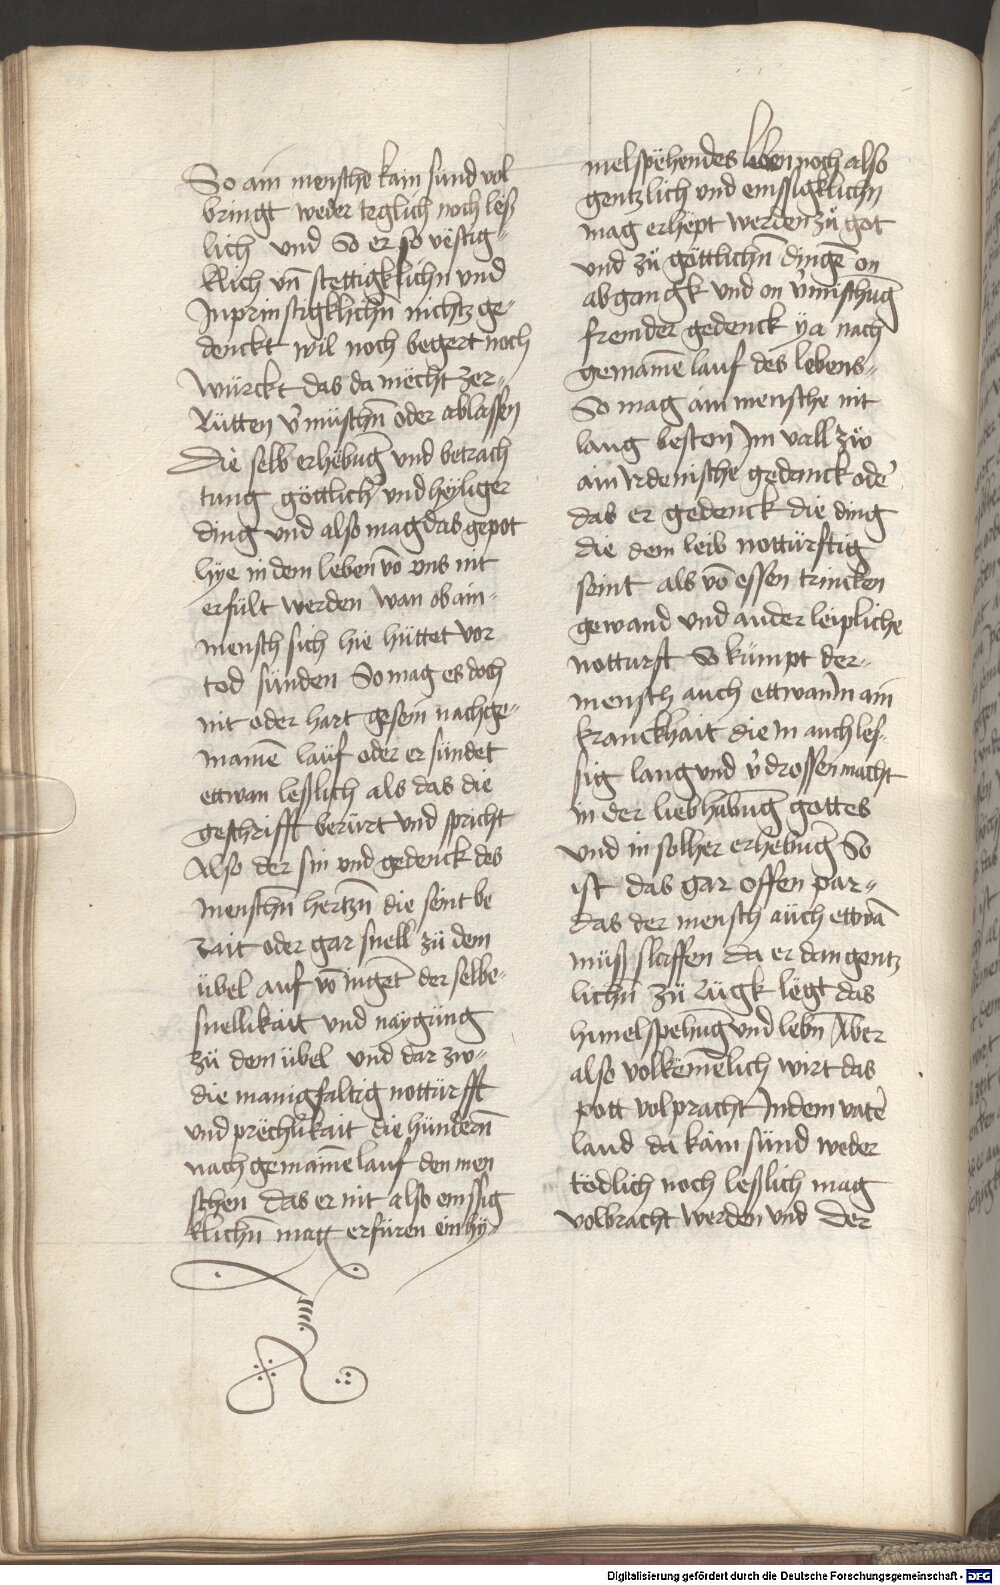 So ain mensche kain sund vol
bringt weder teglich noch leß
lich und So er so vestig-
klich vn̄ stettigklichn̄ und
Inprinstigklichn̄ nichtz ge-
denckt wil noch begert noch
würckt das da mëcht zer-
Rütten v̓müschn̄ oder ablassen
Die selb erhëbūg und betrach
tung göttlicher und heyliger
ding und also mag das gepot
hye in dem leben vō uns nit
erfült werden wan ob ain-
mensch sich hie hüttet vor
tod sünden So mag es doch
nit oder hart gesein nach ge-
mainē lauf oder er sündet
ettwan leßlich als das die
geschrifft berürt und spricht
Also der sin und gedenck des
menschn̄ hertzn̄ die seint be
rait oder gar snell zü dem
übel auf vō iugēt der selbe-
snellikait und naygüng
zü dem übel und dar zw-
die manigfaltig nottürfft
und prechlikait die hündern̄
nach gemainē lauf den men
schen das er nit also emssig
klichn̄ mag erfüren ein hy-
melspëhendes leben noch also
gentzlich und emssigklichn
mag erhëpt werden zü got
und zü göttlichn̄ dingē on
abgangk und on v̓müschūg
fremder gedenck ÿa nach
gemainē lauf des lebens-
So mag ain mensche nit
lang beston Im vall zw
ain Irdenische gedanck oder
das er gedenck die ding
die dem leib nottürftig
seint als vō essen trincken
gewand und ander leipliche
notturft So kümpt der-
mensch auch ettwan In ain
kranckhait die In auch les-
sig lang und v̓drossen macht
in der liebhabūg gottes
und in solher erhebūg So
ist das gar offen par-
das der mensch auch ettwā
müß slaffen da er dan gentz
lichn̄ zü rügk lëgt das
himelspehūg und lebn̄ Aber
also volkëmēlich wirt das
pott volpracht In dem vater
land da kain sünd weder
tödlich noch leßlich mag
volbracht werden und der
Digitalisierung gefördert durch die Deutsche Forschungsgemeinschaft - DFG